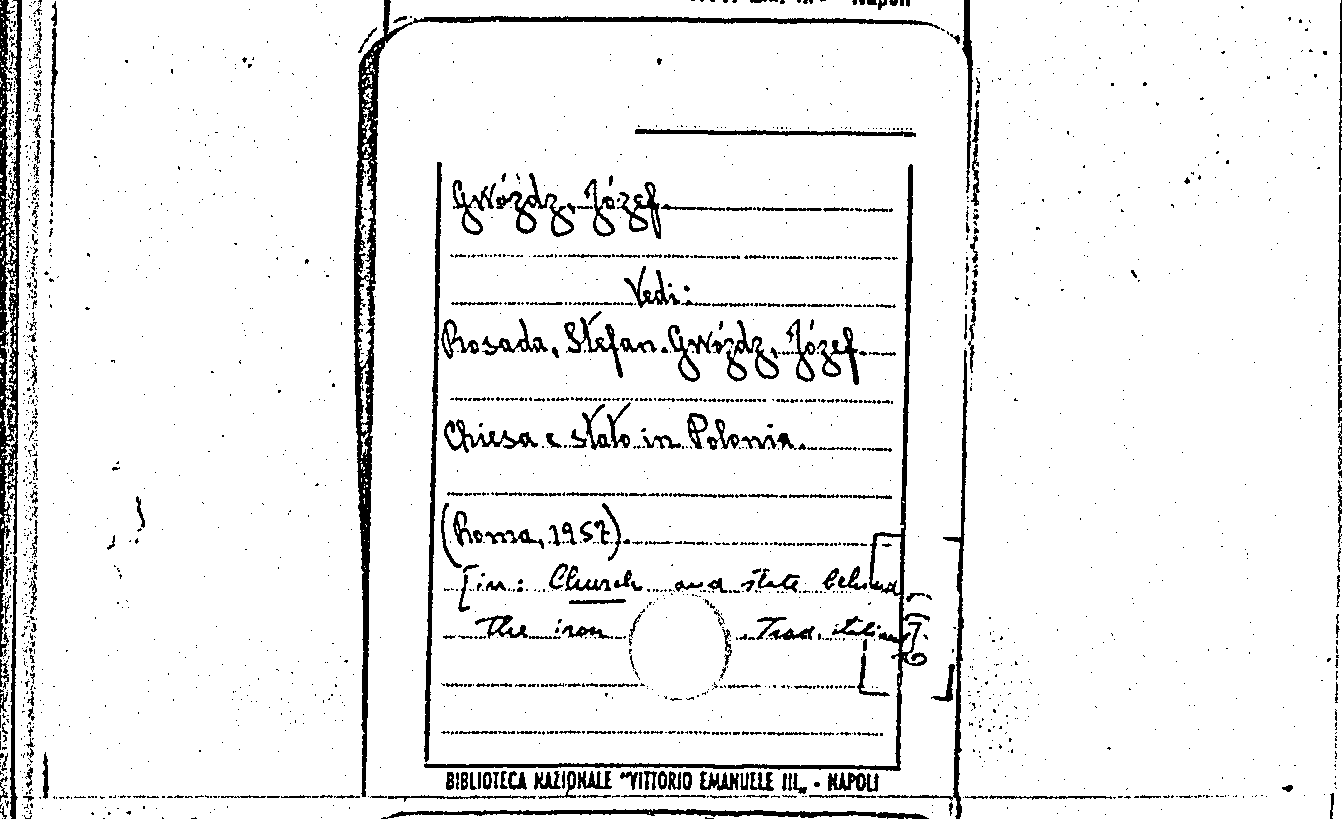 Gwóżdz, Józef.
Vedi:
Rosada, Stefan. Gwóżdz, Józef.
Chiesa e stato in Polonia.
(Roma, 1957).
[in: Church and state behind
The iron . Trad. italiana].
BIBLIOTECA NAZIONALE "VITTORIO EMANUELE III„ - NAPOLI